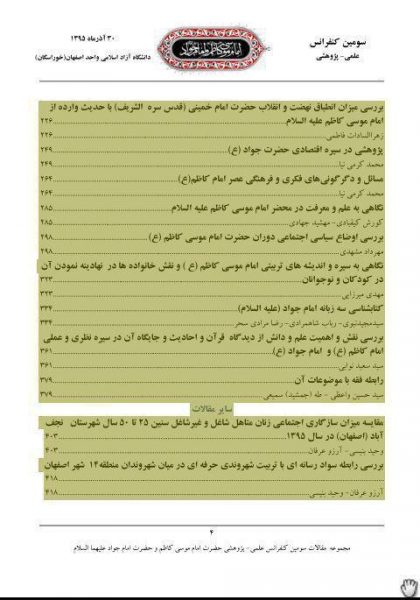 سومین کنفرانس
علمی- پژوهشی
۳۰ آذرماه ۱۳۹۵
دانشگاه آزاد اسلامی واحد اصفهان(خوراسگان)
بررسی میزان انطباق نهضت و انقلاب حضرت امام خمینی (قدس سره الشریف) با حدیث وارده از
امام موسی کاظم علیه السلام ۲۲۶
زهراالسادات فاطمی ۲۲۶
پژوهشی در سیره اقتصادی حضرت جواد (ع) ۲۴۹
محمد کرمی نیا ۲۴۹
مسائل و دگرگونی‌های فکری و فرهنگی عصر امام کاظم(ع) ۲۶۴
محمد کرمی نیا ۲۶۴
نگاهی به علم و معرفت در محضر امام موسی کاظم علیه السلام ۲۸۵
کورش کیقبادی- مهشید جهادی ۲۸۵
بررسی اوضاع سیاسی اجتماعی دوران حضرت امام موسی کاظم (ع) ۲۹۸
مهرداد مشهدی ۲۹۸
نگاهی به سیره و اندیشه های تربیتی امام موسی کاظم (ع) و نقش خانواده ها در نهادینه نمودن آن
در کودکان و نوجوانان ۳۲۳
مهدی میرزایی ۳۲۳
کتابشناسی سه زبانه امام جواد (علیه السلام) ۳۳۴
سیدمجیدنبوی- رباب شاهمرادی- رضا مرادی سحر ۳۳۴
بررسی نقش و اهمیت علم و دانش از دیدگاه قرآن و احادیث و جایگاه آن در سیره نظری و عملی
امام کاظم (ع) و امام جواد (ع) ۳۶۱
سید سعید نوایی ۳۶۱
رابطه فقه با موضوعات آن ۳۷۹
سید حسین واعظی - طه (جمشید) سمیعی ۳۷۹
سایر مقالات
مقایسه میزان سازگاری اجتماعی زنان متاهل شاغل و غیرشاغل سنین ۲۵ تا ۵۰ سال شهرستان نجف
آباد (اصفهان) در سال ۱۳۹۵ ۴۰۳
وحید بنیسی - آرزو عرفان ۴۰۳
بررسی رابطه سواد رسانه ای با تربیت شهروندی حرفه ای در میان شهروندان منطقه۱۴ شهر اصفهان
۴۱۸
آرزو عرفان- وحید بنیسی ۴۱۸
۴
مجموعه مقالات سومین کنفرانس علمی- پژوهشی حضرت امام موسی کاظم و حضرت امام جواد علیهما السلام